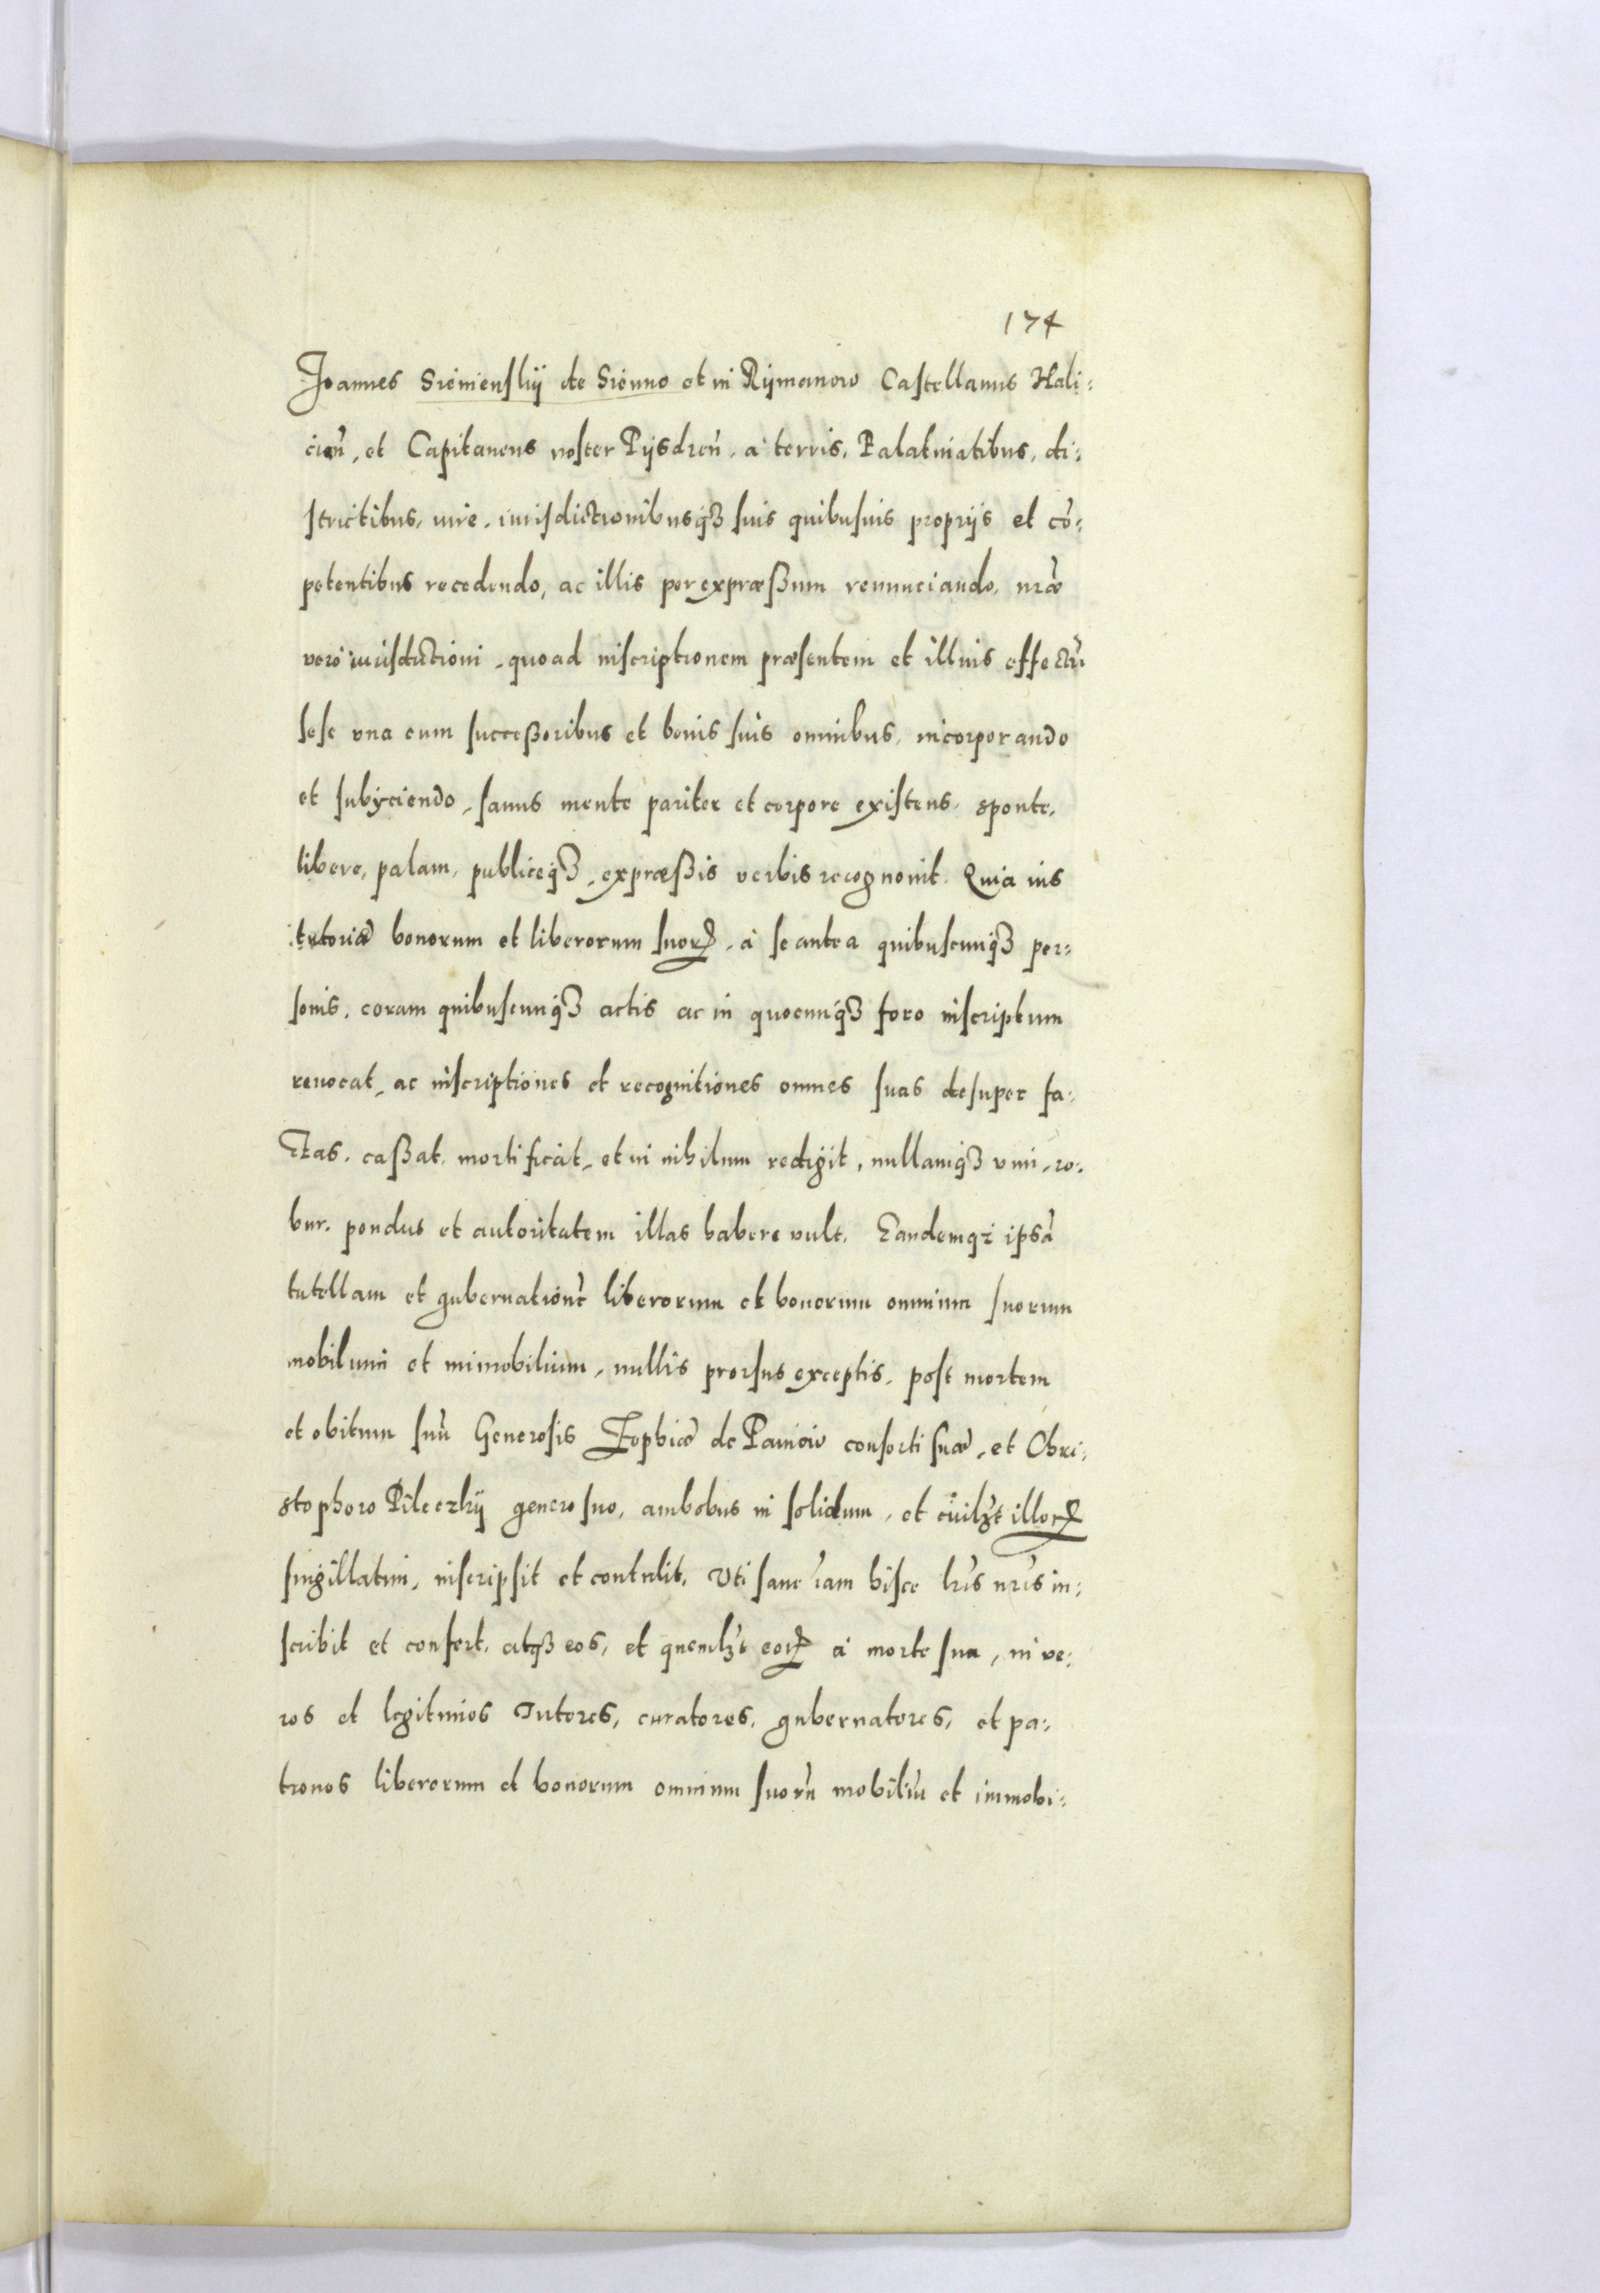 174
Joannes Sienienskÿ de Sienno et in Rÿmanow Castellanus Hali:
cień, et Capitaneus noster Pÿsdreń, à terris, Palatinatibus, di:
strictibus, iure, iurisdictionibusq₃ suis quibusuis proprijs et cō:
petentibus recedendo, ac illis per expræßum renunciando, nræ
vero iurisdictioni, quoad inscriptionem præsentem et illius effectū
sese vna cum succeßoribus et bonis suis omnibus, incorporando
et subijciendo, sanus mente pariter et corpore existens, sponte,
libere, palam, publiceq₃, expræßis verbis recognouit. Quia ius
tutoriæ bonorum et liberorum suoꝝ, à se antea quibuscunq₃ per:
sonis, coram quibuscunq₃ actis ac in quocunq₃ foro inscriptum
reuocat, ac inscriptiones et recognitiones omnes suas desuper fa:
ctas, caßat, mortificat, et in nihilum redigit, nullamq₃ vim, ro:
bur, pondus et autoritatem illas habere vult. Eandemq₃ ipsā
tutellam et gubernationē liberorum et bonorum omnium suorum
mobilium et immobilium, nullis prorsus exceptis, post mortem
et obitum suū Generosis Zophiæ de Paniow consorti suæ, et Chri:
stophoro Pileczkÿ genero suo, ambobus in solidum, et cuilꝫt illoꝝ
singillatim, inscripsit et contulit, Vti sane iam hisce lris nris in:
scribit et confert, atq₃ eos, et quemlꝫt eoꝝ à morte sua, in ve:
ros et legitimos Tutores, curatores, gubernatores, et pa:
tronos liberorum et bonorum omnium suorū mobiliū et immobi: